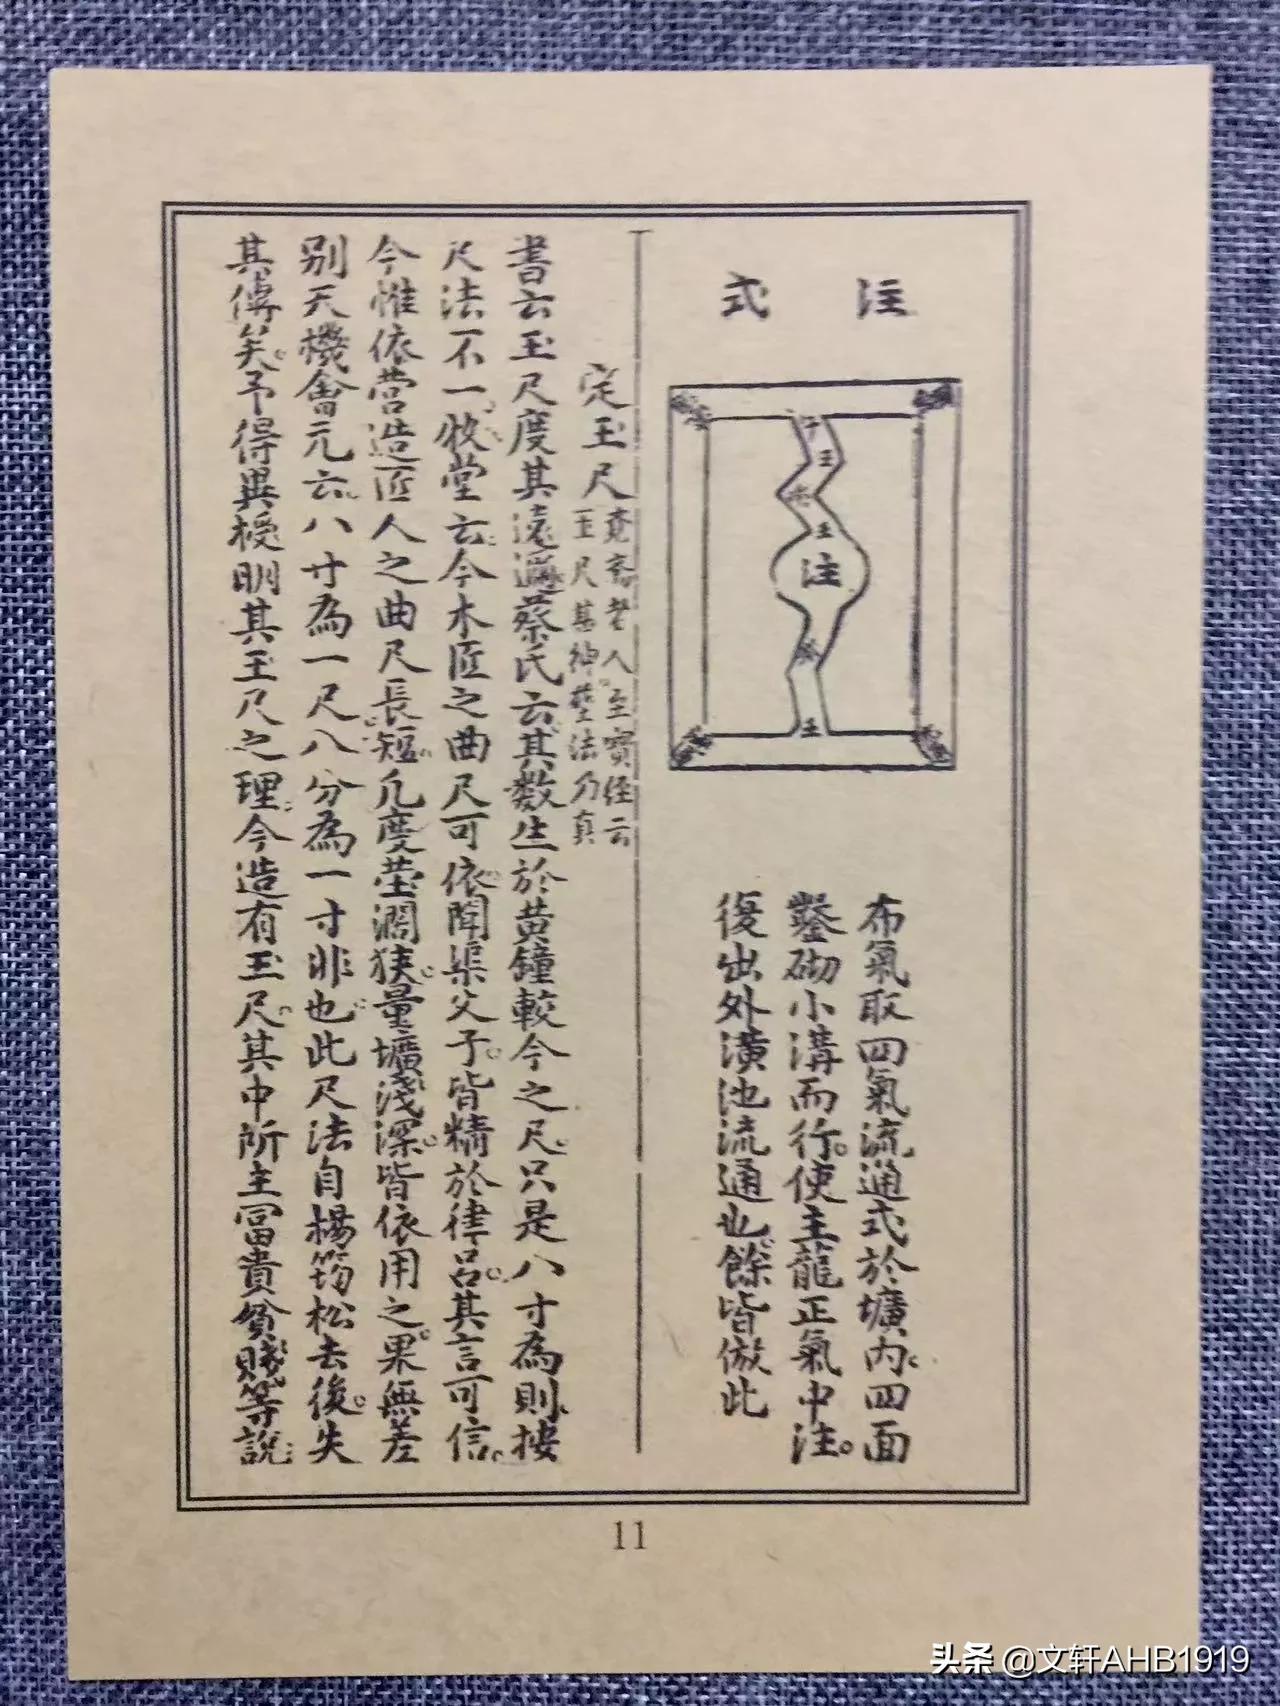 注式
子
壬
壬
注
癸
壬
布氣取四氣流通式於壙內四面
鑿砌小溝而行使主龍正氣中注
復出外潢池流通也餘皆倣此
定玉尺
老人至寶經云
玉尺甚神塋法乃真
書云玉尺度其遠邇蔡氏云其數生於黃鐘較今之尺只是八寸為則按
尺法不一牧堂云今木匠之曲尺可依聞渠父子皆精於律呂其言可信
今惟依營造匠人之曲尺長短凡度塋濶狹量壙淺深皆依用之果無差
别天機會元云八寸為一尺八分為一寸非也此尺法自楊筠松去後失
其傳矣予得異授明其玉尺之理今造有玉尺其中所主冨貴貧賤等說
11
头条 @文轩AHB1919